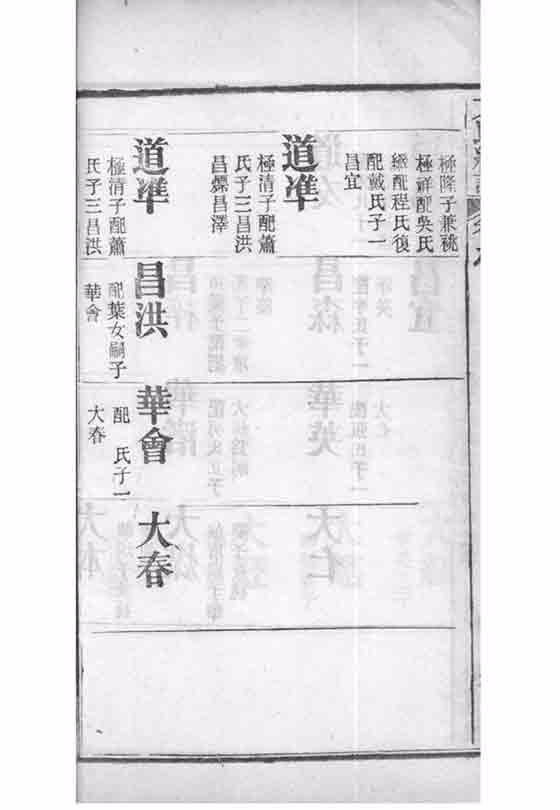 極隆子兼祧
極祥配吳氏
繼配程氏復
配戴氏子一
昌宜
道準
極清子配蕭
氏子三昌洪
昌爍昌澤
道準
極清子配蕭
氏子三昌洪
昌洪
配葉女嗣子
華會
華會
配　氏子一
大春
大春